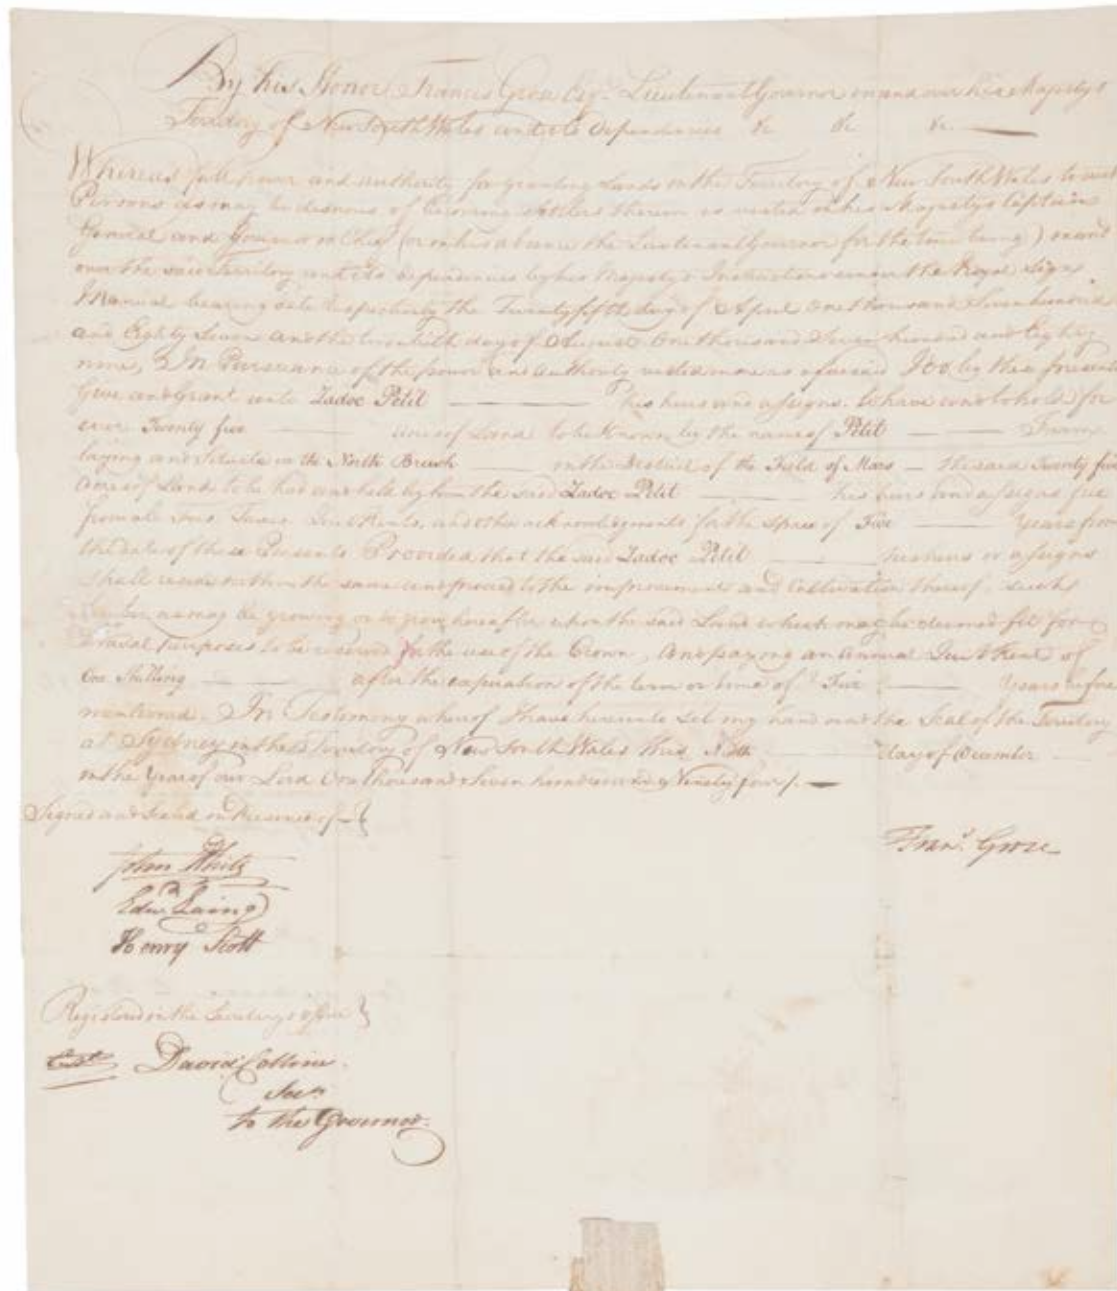 By His Honor Francis Grose Esqr. Lieutenant Governor in and over his Majesty's
Territory of New South Wales and its Dependencies &c &c &c.
Whereas full power and authority for granting Lands in the Territory of New South Wales to such
Persons as may be desirous of becoming settlers therein is vested in his Majesty's Captain
General and Governor in Chief (or in his absence the Lieutenant Governor for the time being) in and
over the said Territory and its dependencies by his Majesty's Instructions under the Royal Sign
Manual bearing date respectively the Twenty fifth day of April One thousand Seven hundred
and Eighty Seven and the twentieth day of August One thousand Seven hundred and Eighty
nine, In Pursuance of the power and authority vested in me as aforesaid I do by these presents
Give and Grant unto Zadoc Petit his heirs and assigns to have and to hold for
ever Twenty five acres of Land to be Known by the name of Petit Farm
laying and situate in the North Brush in the District of the Field of Mars the said Twenty five
acres of Land to be had and held by him the said Zadoc Petit his heirs and assigns free
from all Fees Taxes Quit Rents, and other acknowledgments for the space of Five Years from
the date of these Presents Provided that the said Zadoc Petit his heirs or assigns
shall reside within the same and proceed to the improvement and cultivation thereof, such
Timber as may be growing or to grow hereafter upon the said Land which may be deemed fit for
Naval Purposes to be reserved for the use of the Crown, And paying an annual Quit Rent of
One Shilling after the expiration of the term or time of Five Years before
mentioned. In Testimony whereof I have hereunto set my hand and the Seal of the Territory
at Sydney in the Territory of New South Wales this Ninth day of December
in the Year of our Lord One Thousand Seven hundred and Ninety four/.
Signed and Sealed in Presence of
Frans. Grose
John White
Edwd Laing
Henry Scott
Registered in the Secretary's office
David Collins
Secy.
to the Governor.